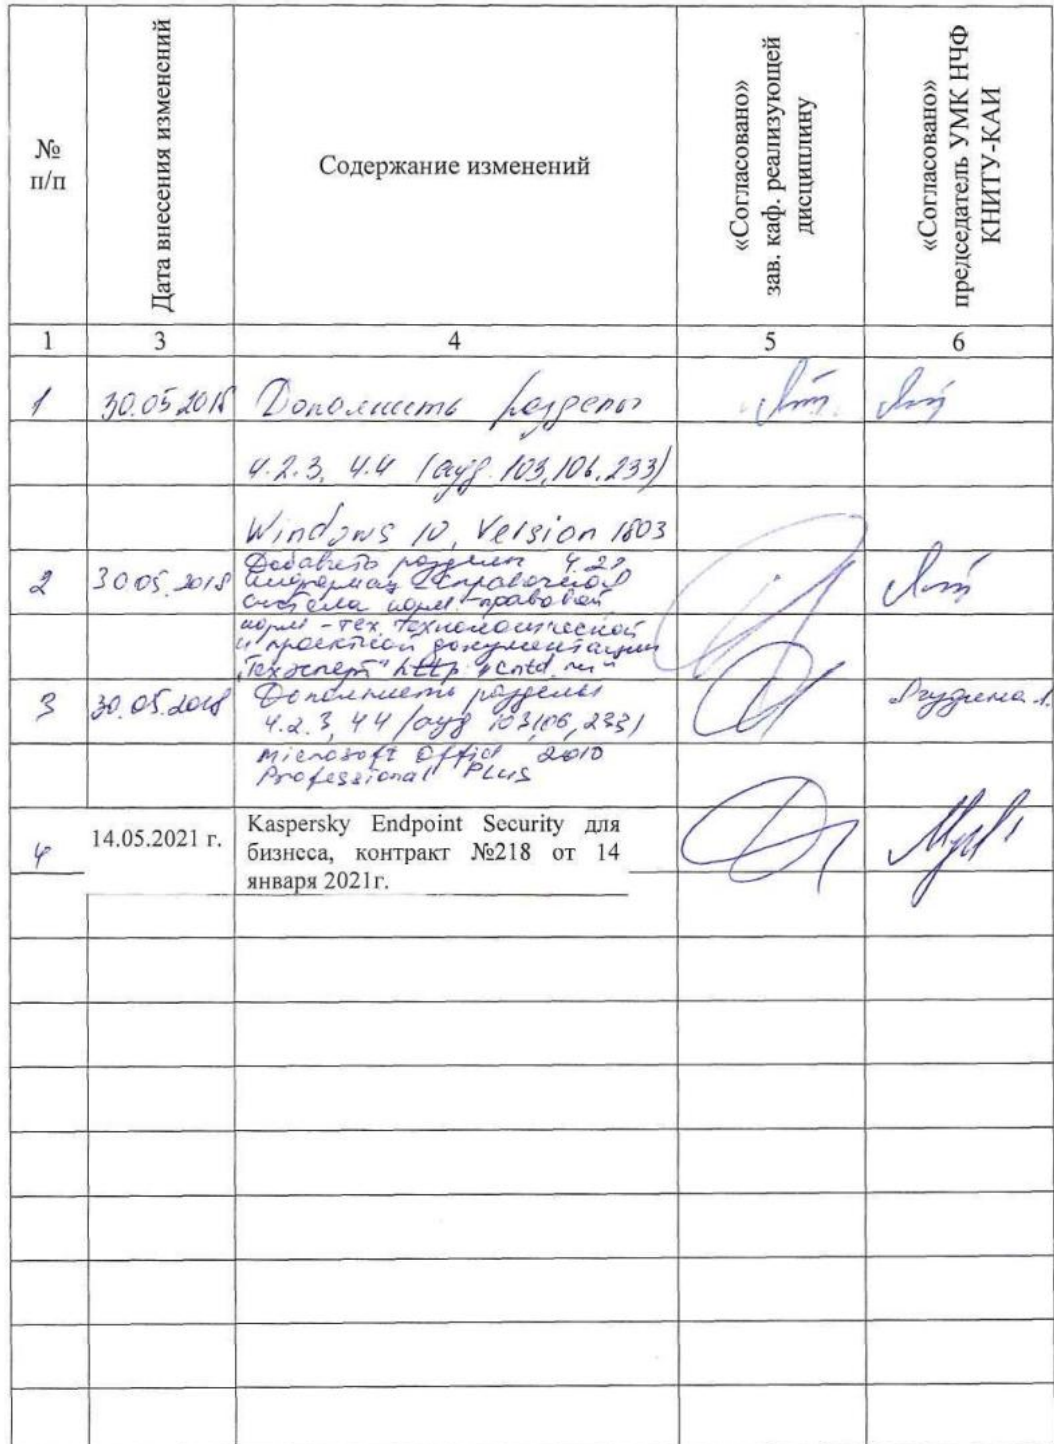 № п/п
Дата внесения изменений
Содержание изменений
«Согласовано»
зав. каф. реализующей
дисциплину
«Согласовано»
председатель УМК НЧФ
КНИТУ-КАИ
1 3 4 5 6
1 30.05.2018 Дополнить разделы
4.2.3, 4.4 (ауд. 103, 106, 233)
Windows 10, Version 1803
2 30.05.2018 Добавить разделы 4.2
информац справочной
система норм.-правовой
норм-тех. технологической
и проектной документации
"Техэксперт" http
3 30.05.2018 Дополнить разделы
4.2.3, 4.4 (ауд 103,106, 233)
Microsoft Office 2010
Professional Plus
4 14.05.2021 г. Kaspersky Endpoint Security для
бизнеса, контракт №218 от 14
января 2021г.